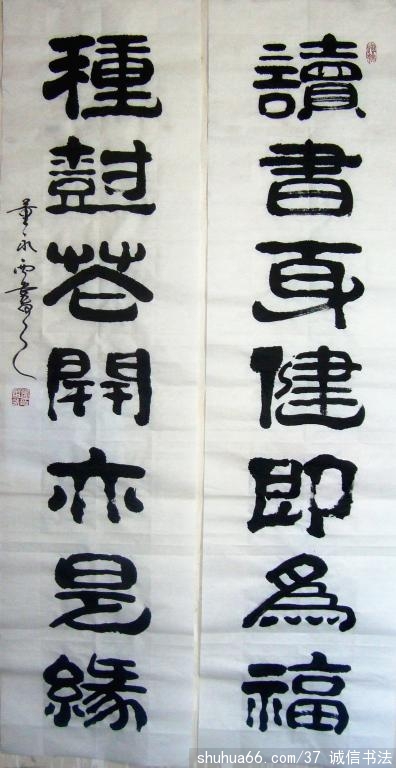 讀書身健即為福
種樹花開亦是緣
董永西書
shuhua66.com/37 诚信书法